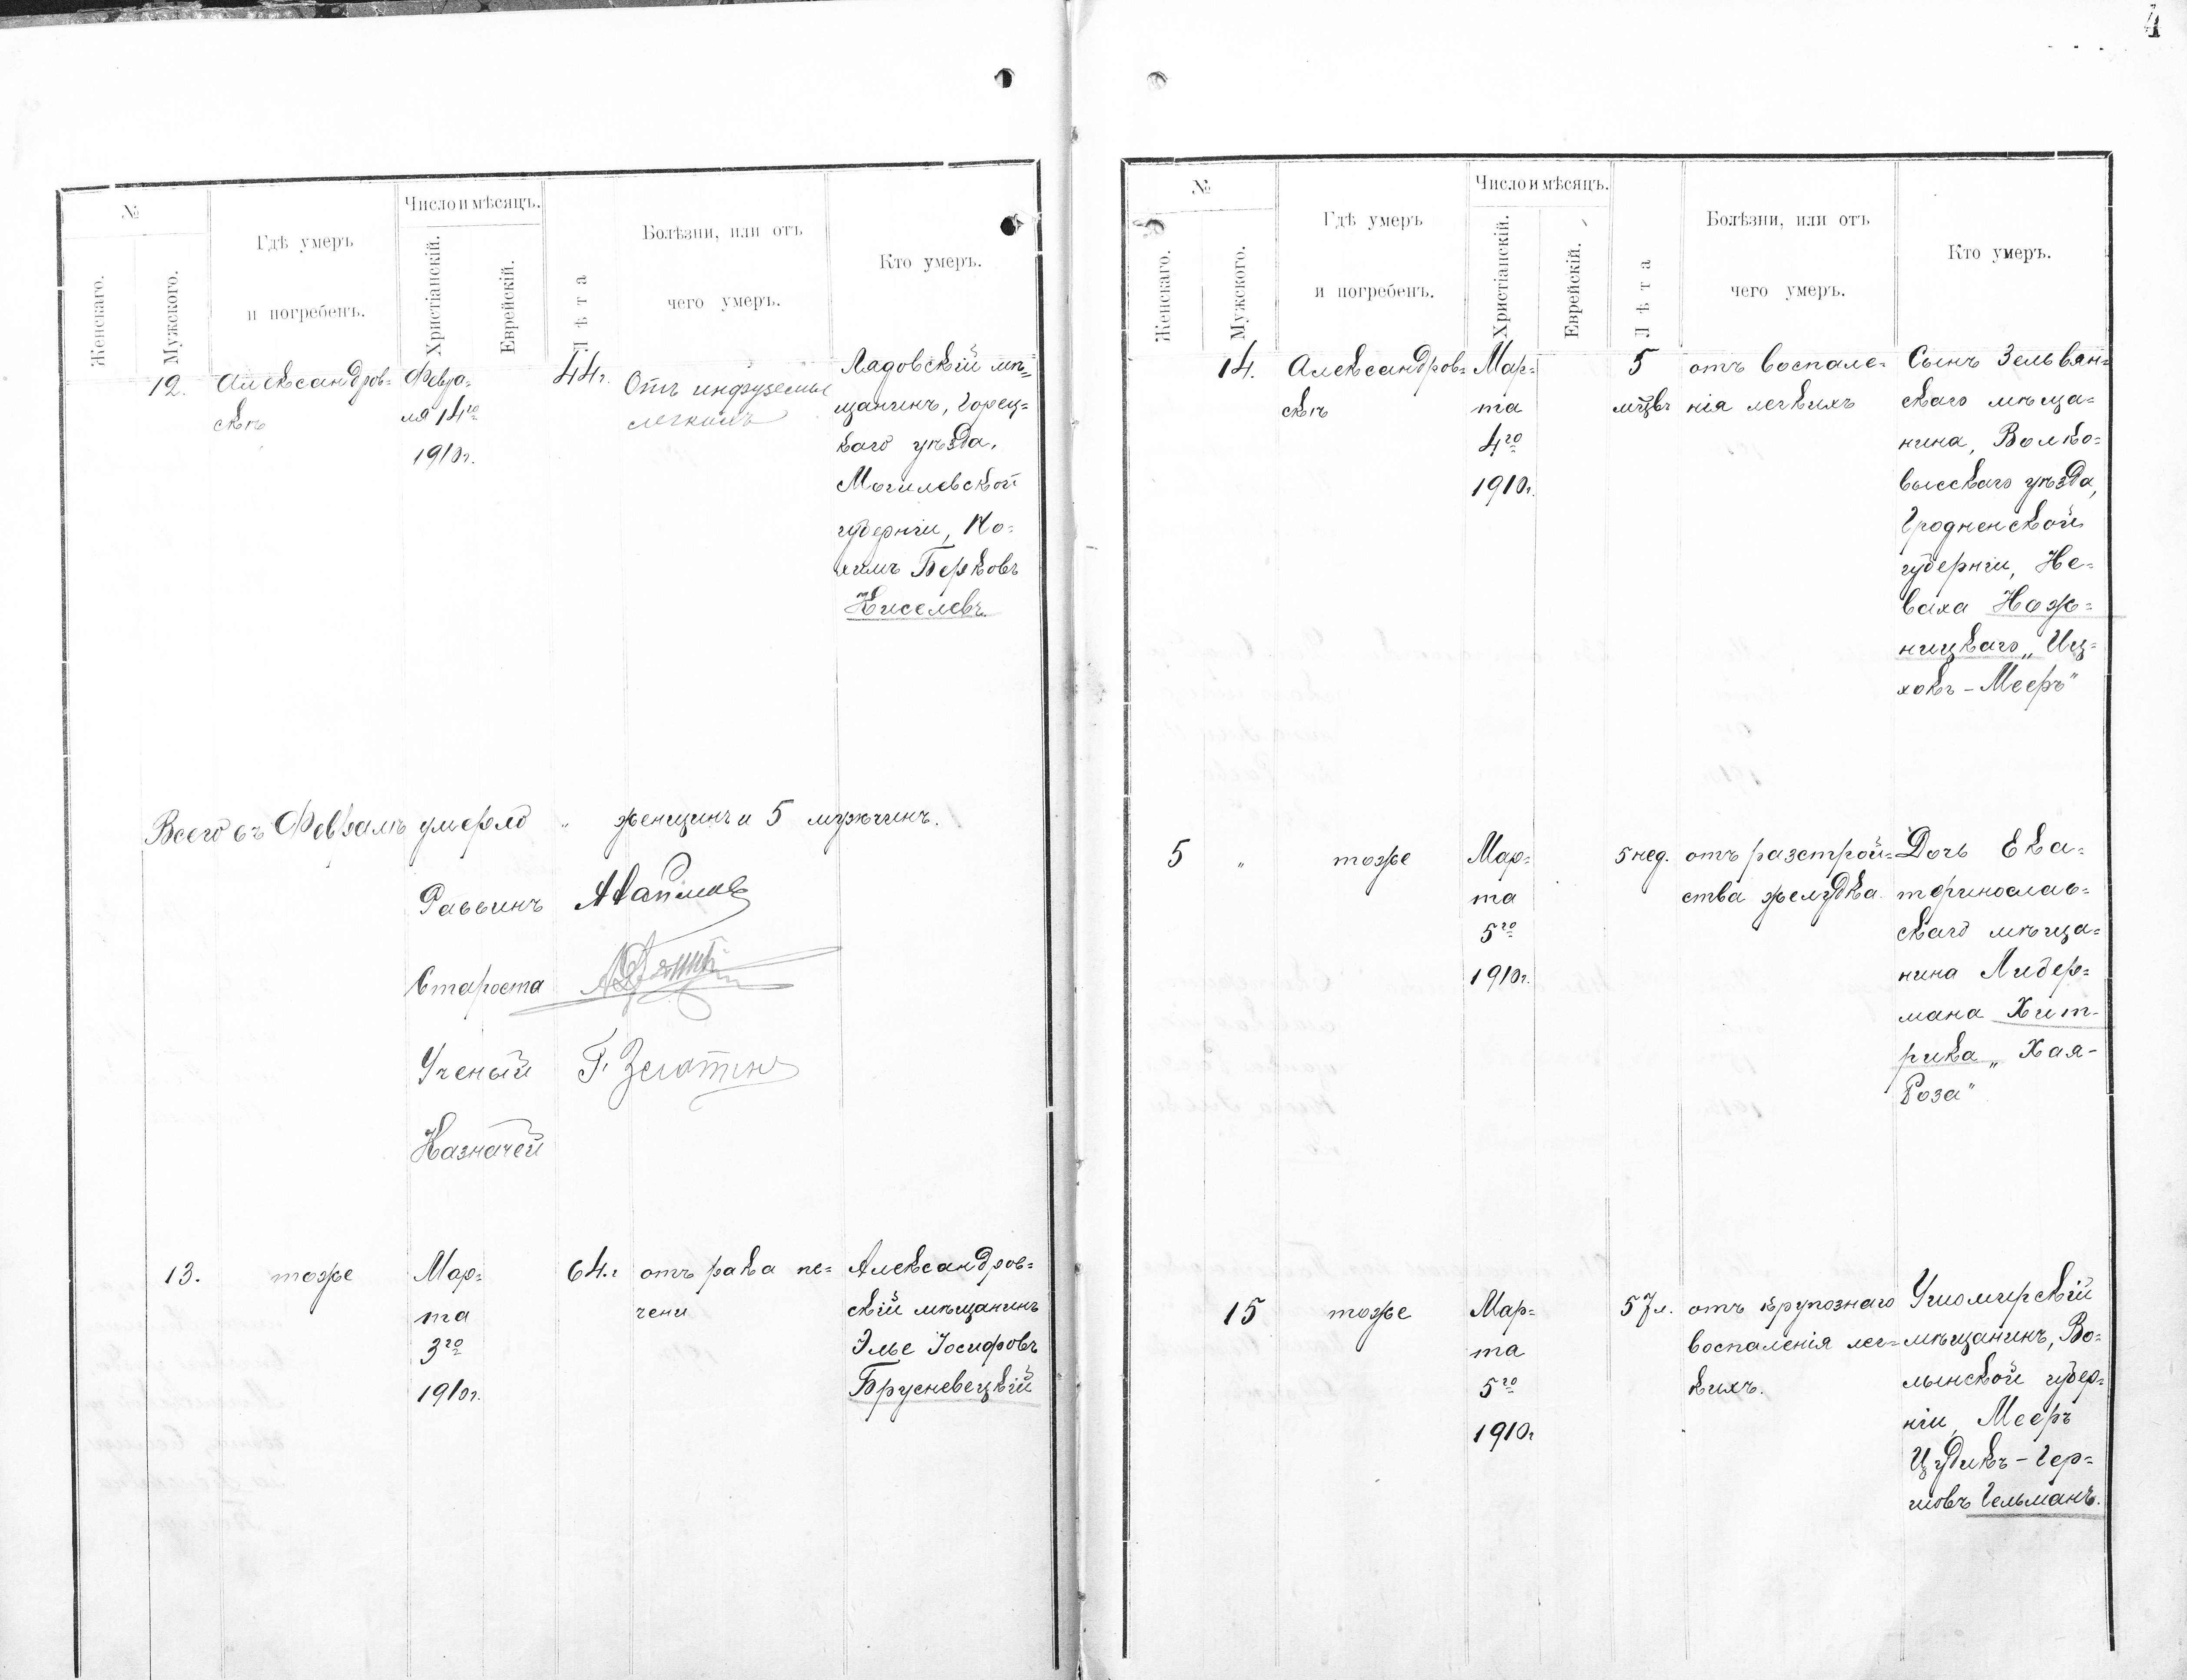 4
№
Числоимѣсяцъ.
Женскаго.
Мужского.
Гдѣ умеръ
и погребенъ.
Христіанскій.
Еврейскій.
Лѣта
Болѣзни, или отъ
чего умеръ.
Кто умеръ.
12.
Александров=
скѣ
Февра=
ля 14го
1910г.
44г.
Отъ инфуземы
легкихъ
Лядовскій мѣ=
щанинъ, Горец=
каго уѣзда,
Могилевской
губерніи, Но=
химъ Берковъ
Киселевъ.
Всего въ Февралѣ умерло " женщинъ и 5 мужчинъ.
Раввинъ
Староста
Ученый
Казначей
13.
тоже
Мар=
та
3го
1910г.
64.г
отъ рака пе=
чени
Александров=
скій мѣщанинъ
Элье Іосифовъ
Брусневецкій
№
Числоимѣсяцъ.
Женскаго.
Мужского.
Гдѣ умеръ
и погребенъ.
Христіанскій.
Еврейскій.
Лѣта
Болѣзни, или отъ
чего умеръ.
Кто умеръ.
14.
Александров=
скѣ
Мар=
та
4го
1910г.
5
мѣцвъ
отъ воспале=
нія легкихъ
Сынъ Зельвян=
скаго мѣща=
нина, Волко=
высскаго уѣзда,
Гродненской
губерніи, Не=
ваха Нож=
ницкаго „Иц=
хокъ-Мееръ"
5
"
тоже
Мар=
та
5го
1910г.
5 нед.
отъ разстрой=
ства желудка.
Дочь Ека=
теринослав=
скаго мѣща=
нина Лидер=
мана Хит-
рика „Хая-
Роза"
15
тоже
Мар=
та
5го
1910г
57л.
отъ крупознаго
воспаленія лег=
кихъ.
Ушомирскій
мѣщанинъ, Во=
лынской губер=
ніи, Мееръ
Цудикъ-Гер=
шовъ Гельманъ.